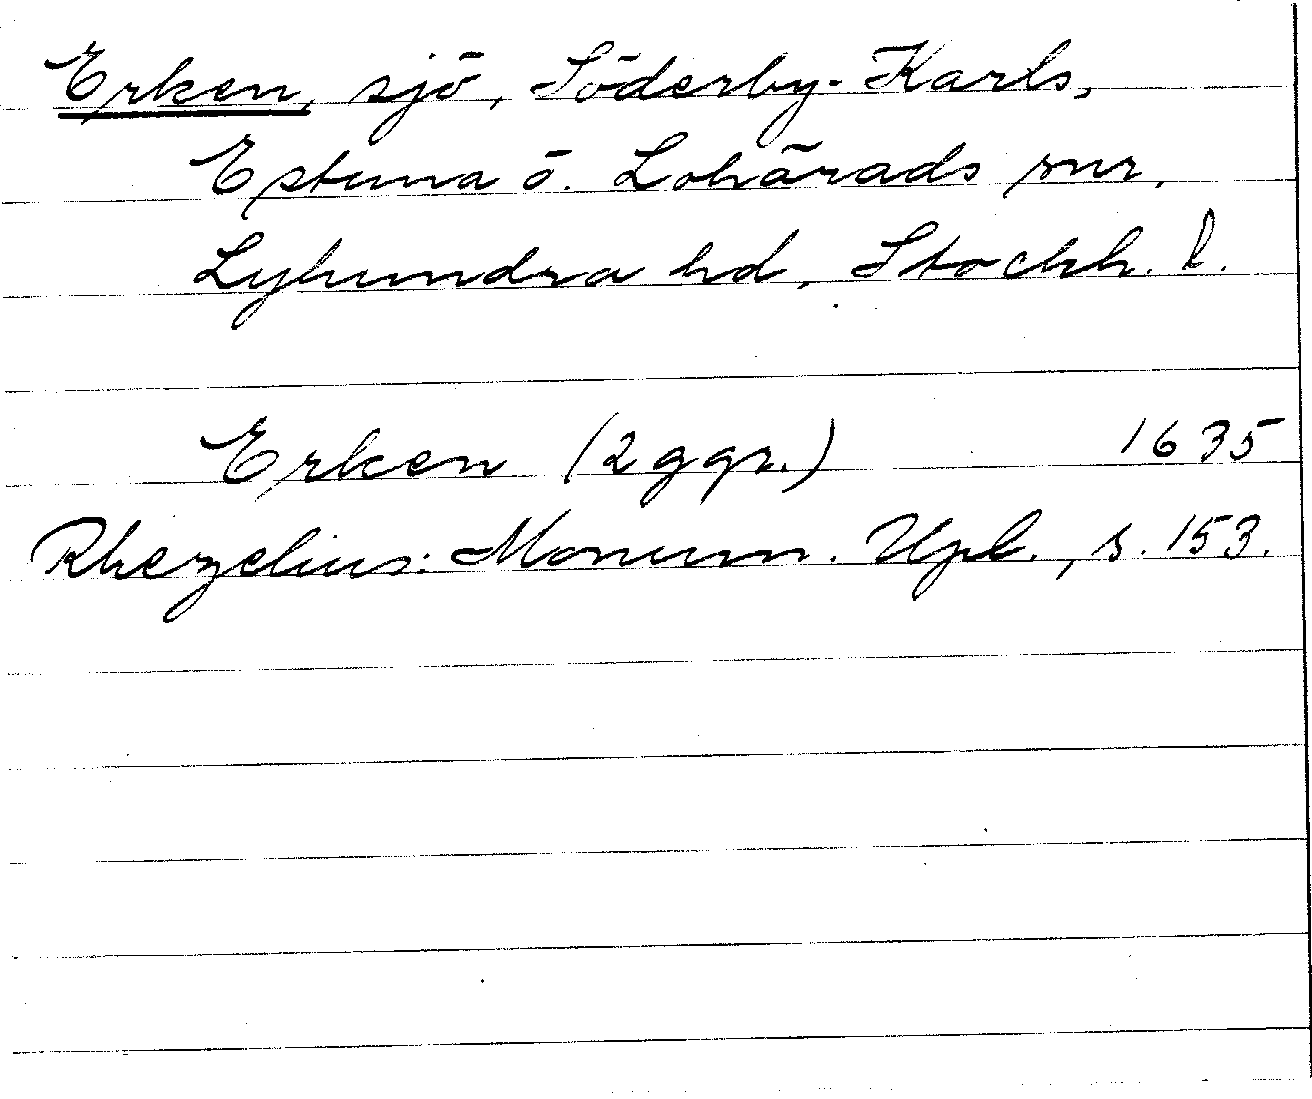 Erken, sjö, Söderby-Karls,
Estuna o. Lohärads snr,
Lyhundra hd, Stockh. l.
Erken (2 ggr.) 1635
Rhezelius: Monum. Upl., s. 153.